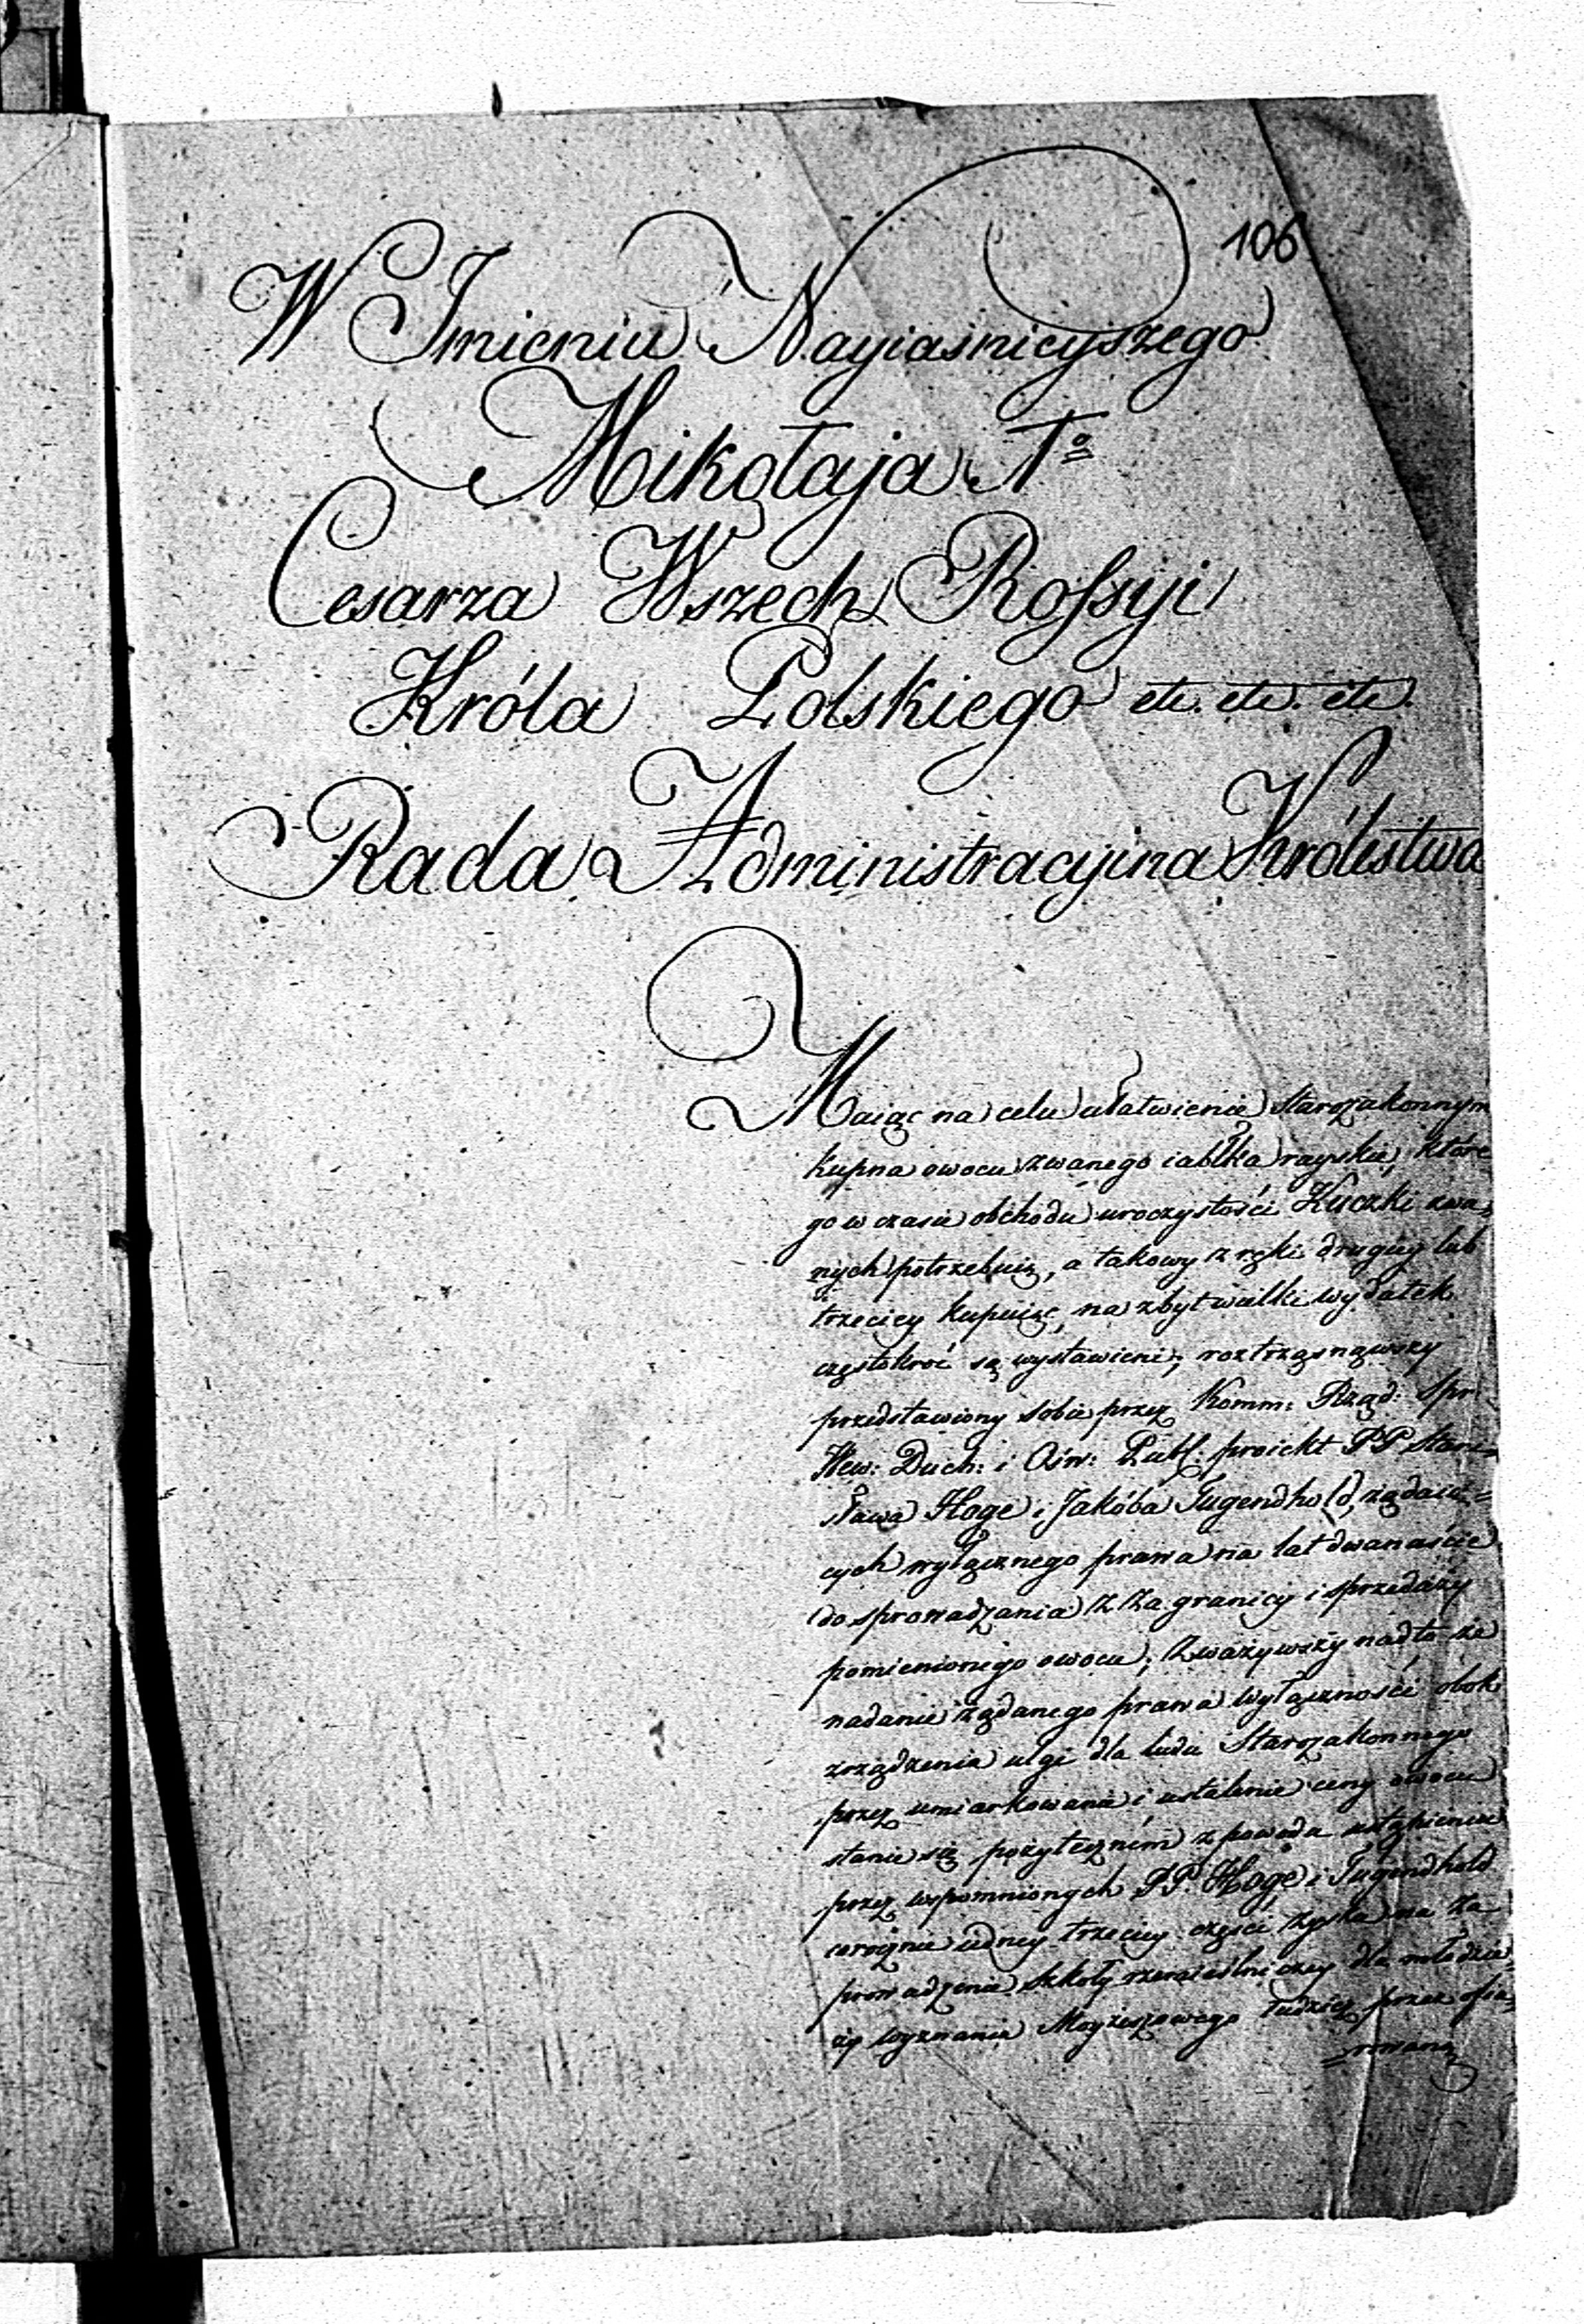 106
W Imieniu Nayiaśnieyszego
Mikołaja Iº
Cesarza Wszech Rossyi
Króla Polskiego etc. etc. etc.
Rada Administracyina Królestwa
Maiąc na celu ułatwienie Starozakonnym
kupna owocu zwanego iabłka rayskie, które
go w czasie obchodu uroczystości Kuczki zwa=
nych potrzebuią, a takowy z ręki drugiey lub
trzeciey kupuiąc, na zbyt wielki wydatek
częstokroć są wystawieni; roztrząsnąwszy
przedstawiony sobie przez Komm: Rząd: Spr
Wew: Duch: i Ośw: Publ: proiekt PP Stani=
sława Hoge i Jakóba Tugendhold, żądaią=
cych wyłącznego prawa na lat dwanaście
do sprowadzania z za granicy i sprzedaży
pomienionego owocu; Zważywszy nadto że
nadanie żądanego prawa wyłączności obok
zrządzenia ulgi dla ludu Starozakonnego
przez umiarkowanie i ustalenie ceny owocu
stanie się pożytecznem z powodu ustąpienia
przez wspomnionych PP. Hoge i Tugendhold
corocznie iedney trzeciey części zysku na za
prowadzenie Szkoły rzemieślniczey dla młodzie=
ży wyznania Moyżeszowego tudzież przez ofia=
=rowaną